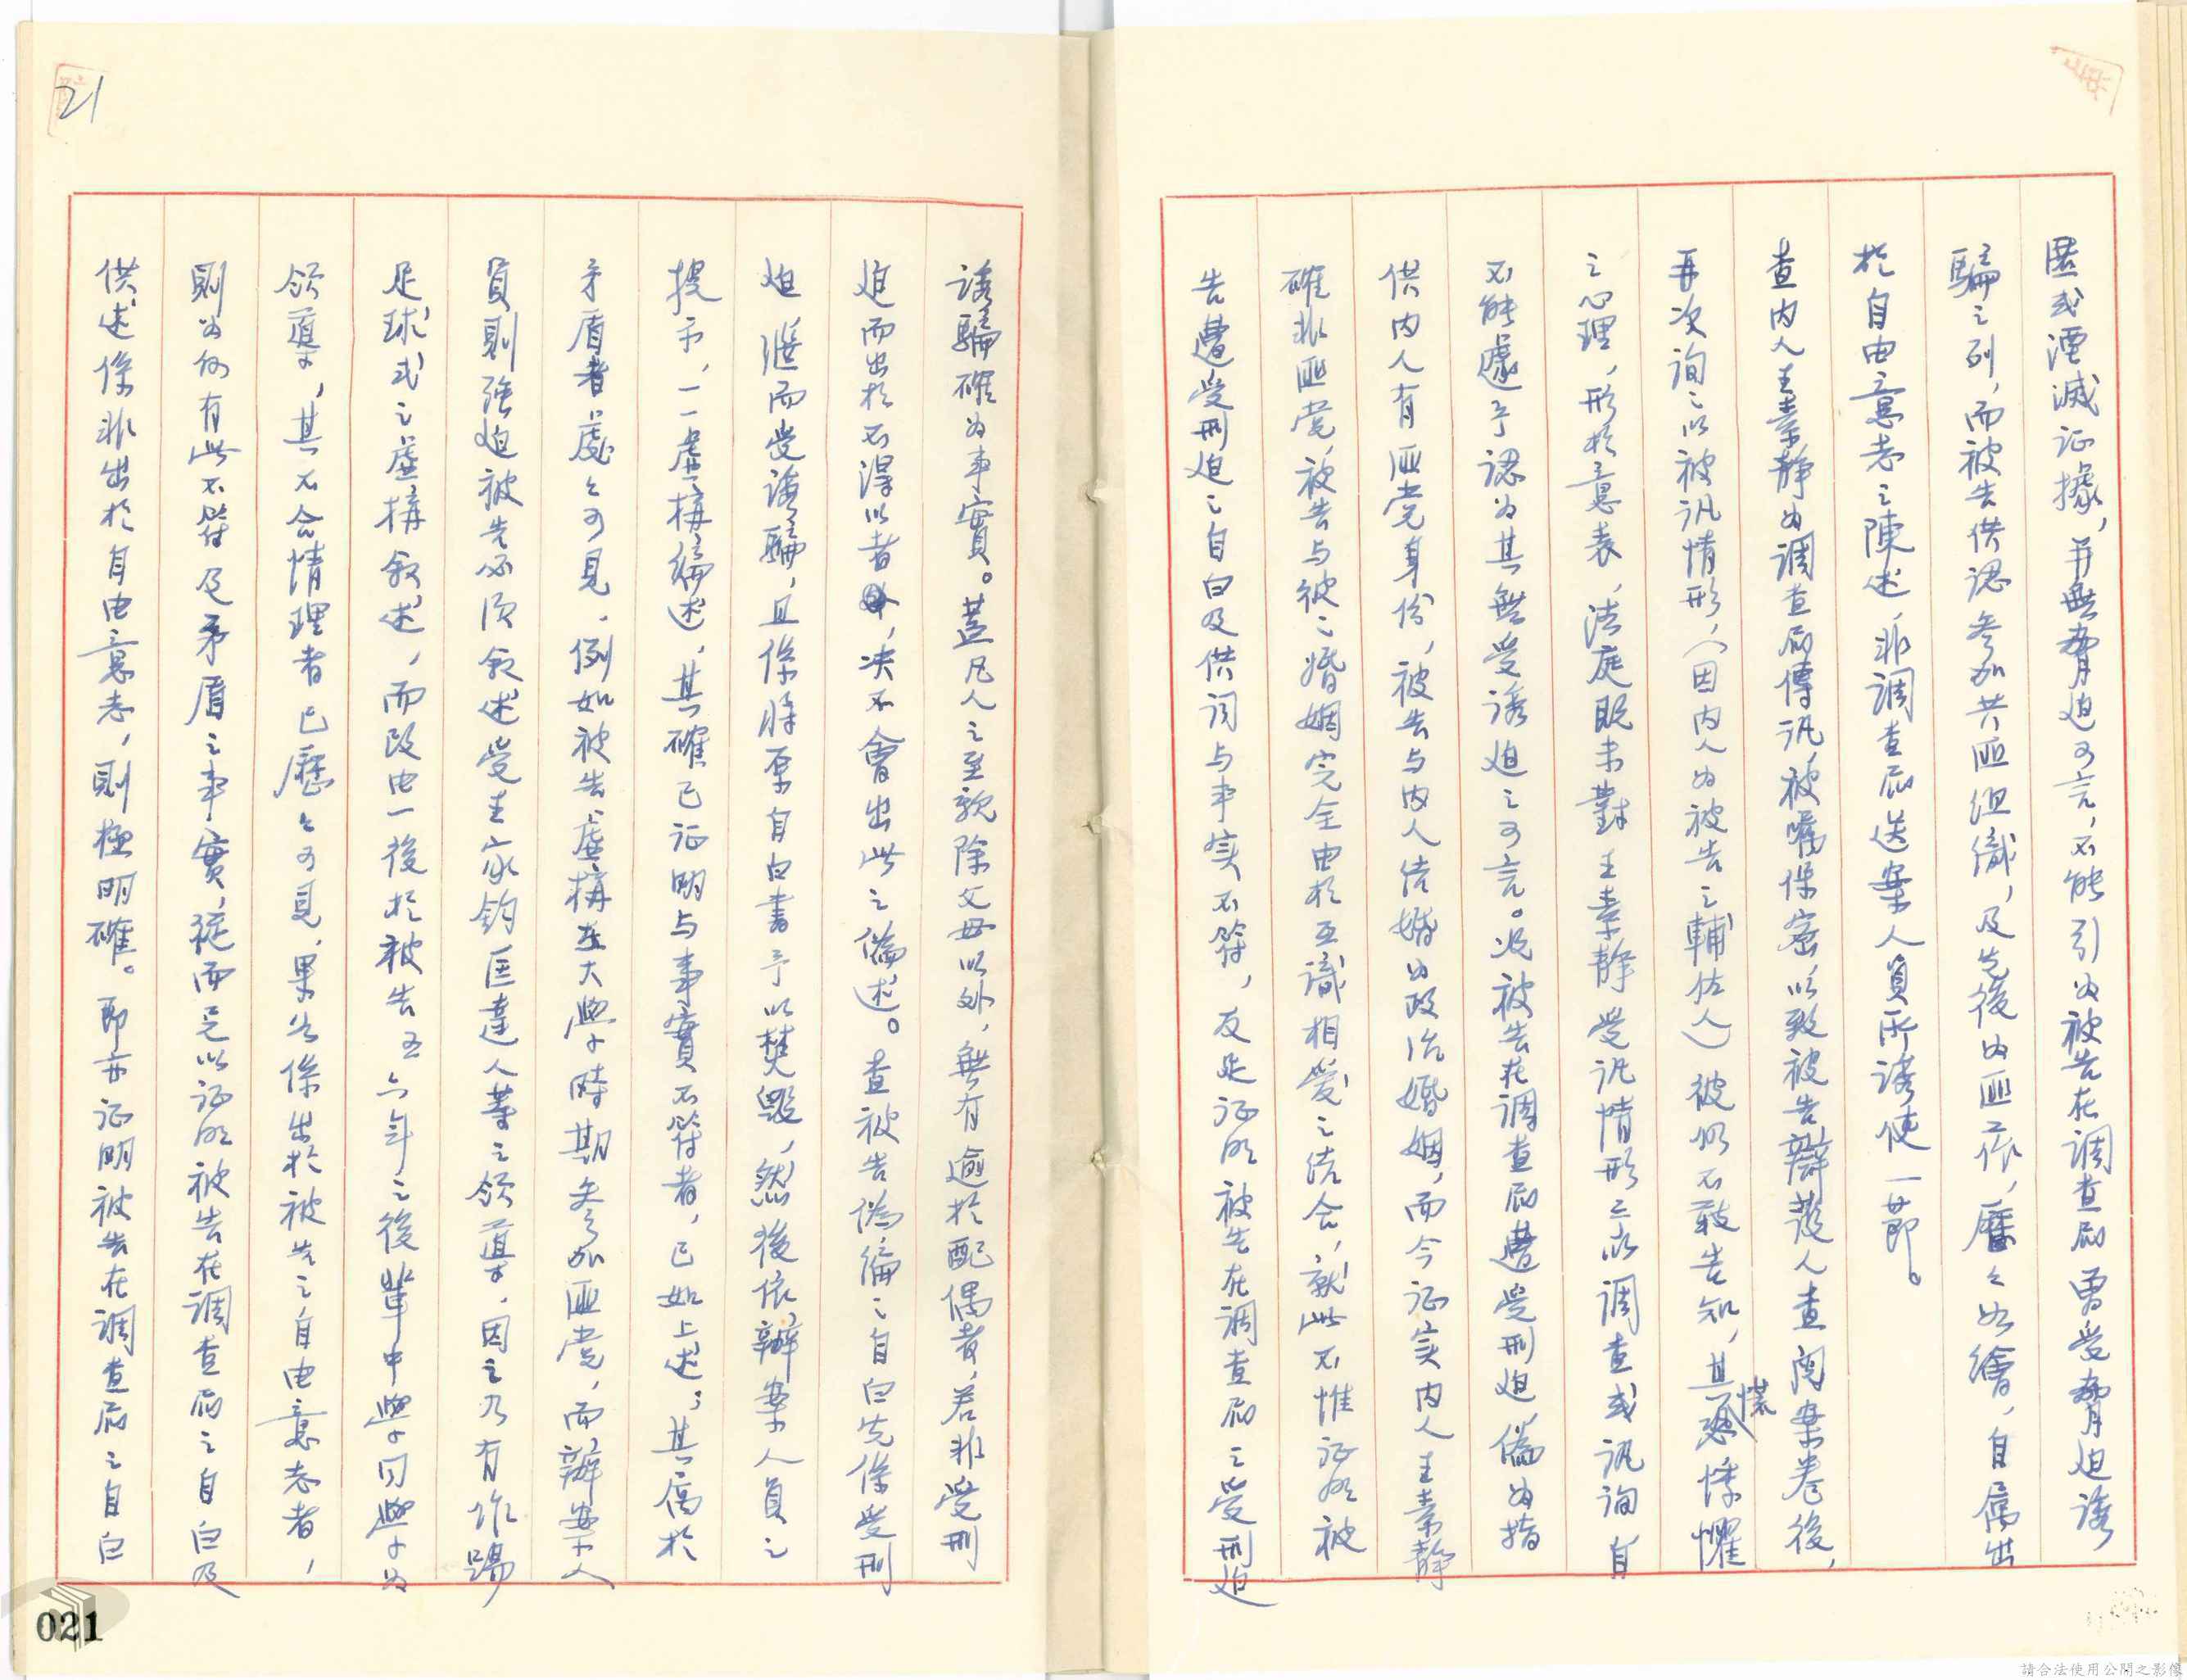 匿或湮滅证據，并無脅迫可言，不能引为被告在調查局曾受脅迫誘
騙之列，而被告供認参加共匪组織，及先後为匪工作，歷々如繪，自属出
於自由意志之陳述，非調查局送案人員所誘使一節。
查内人王素静为調查局傳讯，被嘱保密以致被告辯護人查閱案卷後，
再次詢之以被讯情形，（因内人为被告之輔佐人）彼仍不敢告知，其慌恐悸懼
之心理，形於意表，法庭既未對王素静受讯情形三求調查或讯詢自
不能遽予認为其無受誘迫之可言。况被告在調查局遭受刑迫，偽为指
供内人有匪党身份，被告与内人结婚为政治婚姻，而今证实内人王素静
確非匪党，被告与彼之婚姻完全由於互識相爱之结合，就此不惟证明被
告遭受刑迫之自白及供词与事实不符，反足证明被告在調查局之受刑迫
誘騙確为事實。蓋凡人之至親除父母以外，無有逾於配偶者，若非受刑
迫而出於不得以者，决不會出此之偽述。查被告偽编之自白先係受刑
迫，繼而受誘騙，且係將原自白書予以焚毁，然後依辦案人員之
提示，一一虚構编述，其確已证明与事實不符者，已如上述；其属於
矛盾者處々可見，例如被告虚構在大學時期参加匪党，而辦案人
員則强迫被告必须叙述受王家鈞匡達人等之领導，因之乃有作踢
足球式之虚構叙述，而改由一後於被告五六年之後輩中學同學为
领導，其不合情理者已歷々可見，果若係出於被告之自由意志者，
則为何有此不符及矛盾之事實，從而足以证明被告在調查局之自白及
供述係非出於自由意志，則極明確。即亦证明被告在調查局之自白
21
021
請合法使用公開之影像